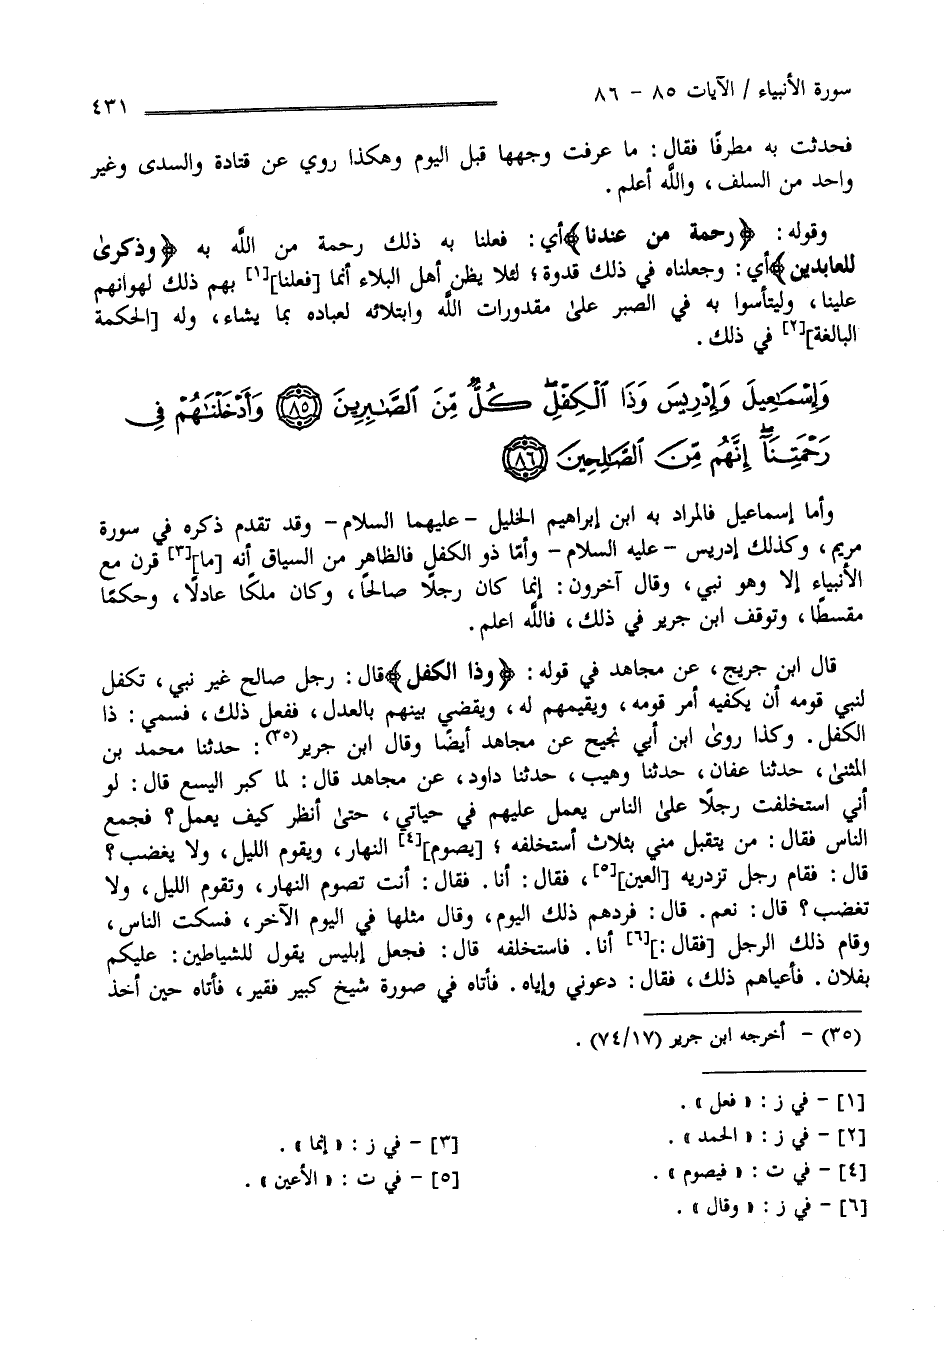 سورة الأنبياء / الآيات ٨٥ - ٨٦
٤٣١
فحدثت به مطرفًا فقال : ما عرفت وجهها قبل اليوم وهكذا روي عن قتادة والسدى وغير
واحد من السلف ، واللَّه أعلم .
وقوله : ﴿رحمة من عندنا﴾أي : فعلنا به ذلك رحمة من اللَّه به ﴿وذكرىٰ
للعابدين﴾أي : وجعلناه في ذلك قدوة ؛ لئلا يظن أهل البلاء أنما [فعلنا][١] بهم ذلك لهوانهم
علينا ، وليتأسوا به في الصبر علىٰ مقدورات اللَّه وابتلائه لعباده بما يشاء ، وله [الحكمة
البالغة][٢] في ذلك .
وَإِسْمَـٰعِيلَ وَإِدْرِيسَ وَذَا ٱلْكِفْلِۖ كُلٌّ مِّنَ ٱلصَّـٰبِرِينَ ﴿٨٥﴾ وَأَدْخَلْنَـٰهُمْ فِي
رَحْمَتِنَآۖ إِنَّهُم مِّنَ ٱلصَّـٰلِحِينَ ﴿٨٦﴾
وأما إسماعيل فالمراد به ابن إبراهيم الخليل - عليهما السلام - وقد تقدم ذكره في سورة
مريم ، وكذلك إدريس - عليه السلام - وأمّا ذو الكفل فالظاهر من السياق أنه [ما][٣] قرن مع
الأنبياء إلا وهو نبي ، وقال آخرون : إنما كان رجلًا صالحًا ، وكان ملكًا عادلًا ، وحكمًا
مقسطًا ، وتوقف ابن جرير في ذلك ، فاللَّه اعلم .
قال ابن جريج ، عن مجاهد في قوله : ﴿وذا الكفل﴾قال : رجل صالح غير نبي ، تكفل
لنبي قومه أن يكفيه أمر قومه ، ويقيمهم له ، ويقضي بينهم بالعدل ، ففعل ذلك ، فسمي : ذا
الكفل . وكذا روىٰ ابن أبي نجيح عن مجاهد أيضًا وقال ابن جرير(٣٥) : حدثنا محمد بن
المثنىٰ ، حدثنا عفان ، حدثنا وهيب ، حدثنا داود ، عن مجاهد قال : لما كبر اليسع قال : لو
أني استخلفت رجلًا علىٰ الناس يعمل عليهم في حياتي ، حتىٰ أنظر كيف يعمل ؟ فجمع
الناس فقال : من يتقبل مني بثلاث أستخلفه ؛ [يصوم][٤] النهار ، ويقوم الليل ، ولا يغضب ؟
قال : فقام رجل تزدريه [العين][٥] ، فقال : أنا . فقال : أنت تصوم النهار ، وتقوم الليل ، ولا
تغضب ؟ قال : نعم . قال : فردهم ذلك اليوم ، وقال مثلها في اليوم الآخر ، فسكت الناس ،
وقام ذلك الرجل [فقال :][٦] أنا . فاستخلفه قال : فجعل إبليس يقول للشياطين : عليكم
بفلان . فأعياهم ذلك ، فقال : دعوني وإياه . فأتاه في صورة شيخ كبير فقير ، فأتاه حين أخذ
(٣٥) - أخرجه ابن جرير (٧٤/١٧) .
[١] - في ز : « فعل » .
[٢] - في ز : « الحمد » .
[٣] - في ز : « إنما » .
[٤] - في ت : « فيصوم » .
[٥] - في ت : « الأعين » .
[٦] - في ز : « وقال » .